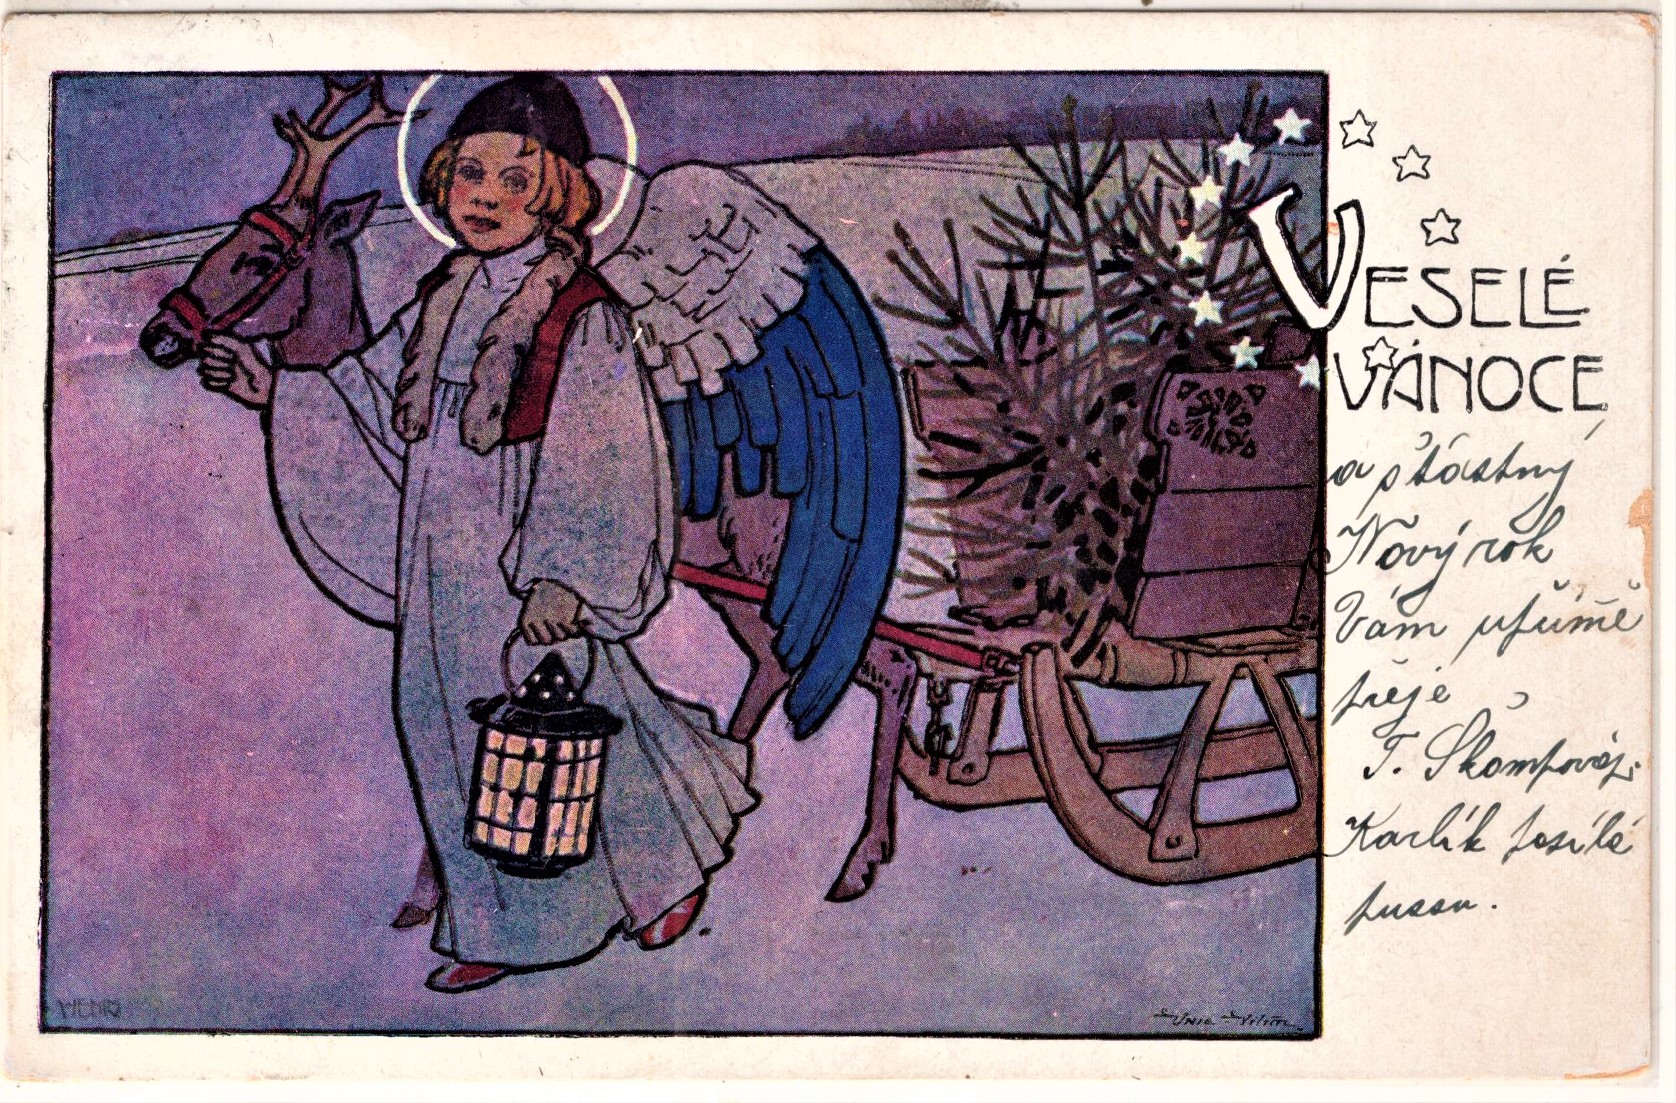 VESELÉ
VÁNOCE
a šťastný
Nový rok
Vám upřímně
přeje
T.
Karlík posílá
pussu.
WENIG
Unie Vilím